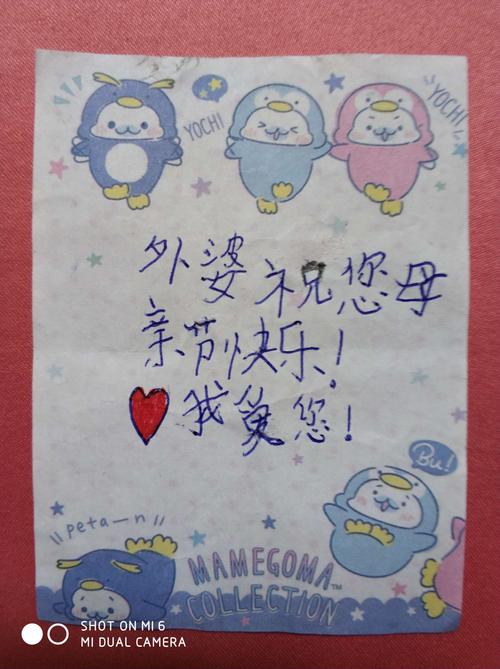 YOCHI
YOCHI
外婆祝您母
亲节快乐!
我爱您!
Bu!
peta—n
MAMEGOMA™
COLLECTION
SHOT ON MI 6
MI DUAL CAMERA